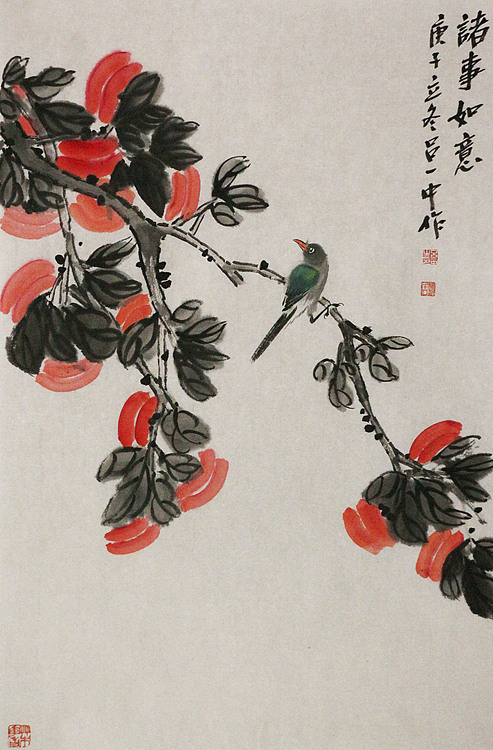 諸事如意
庚子立冬吕一中作